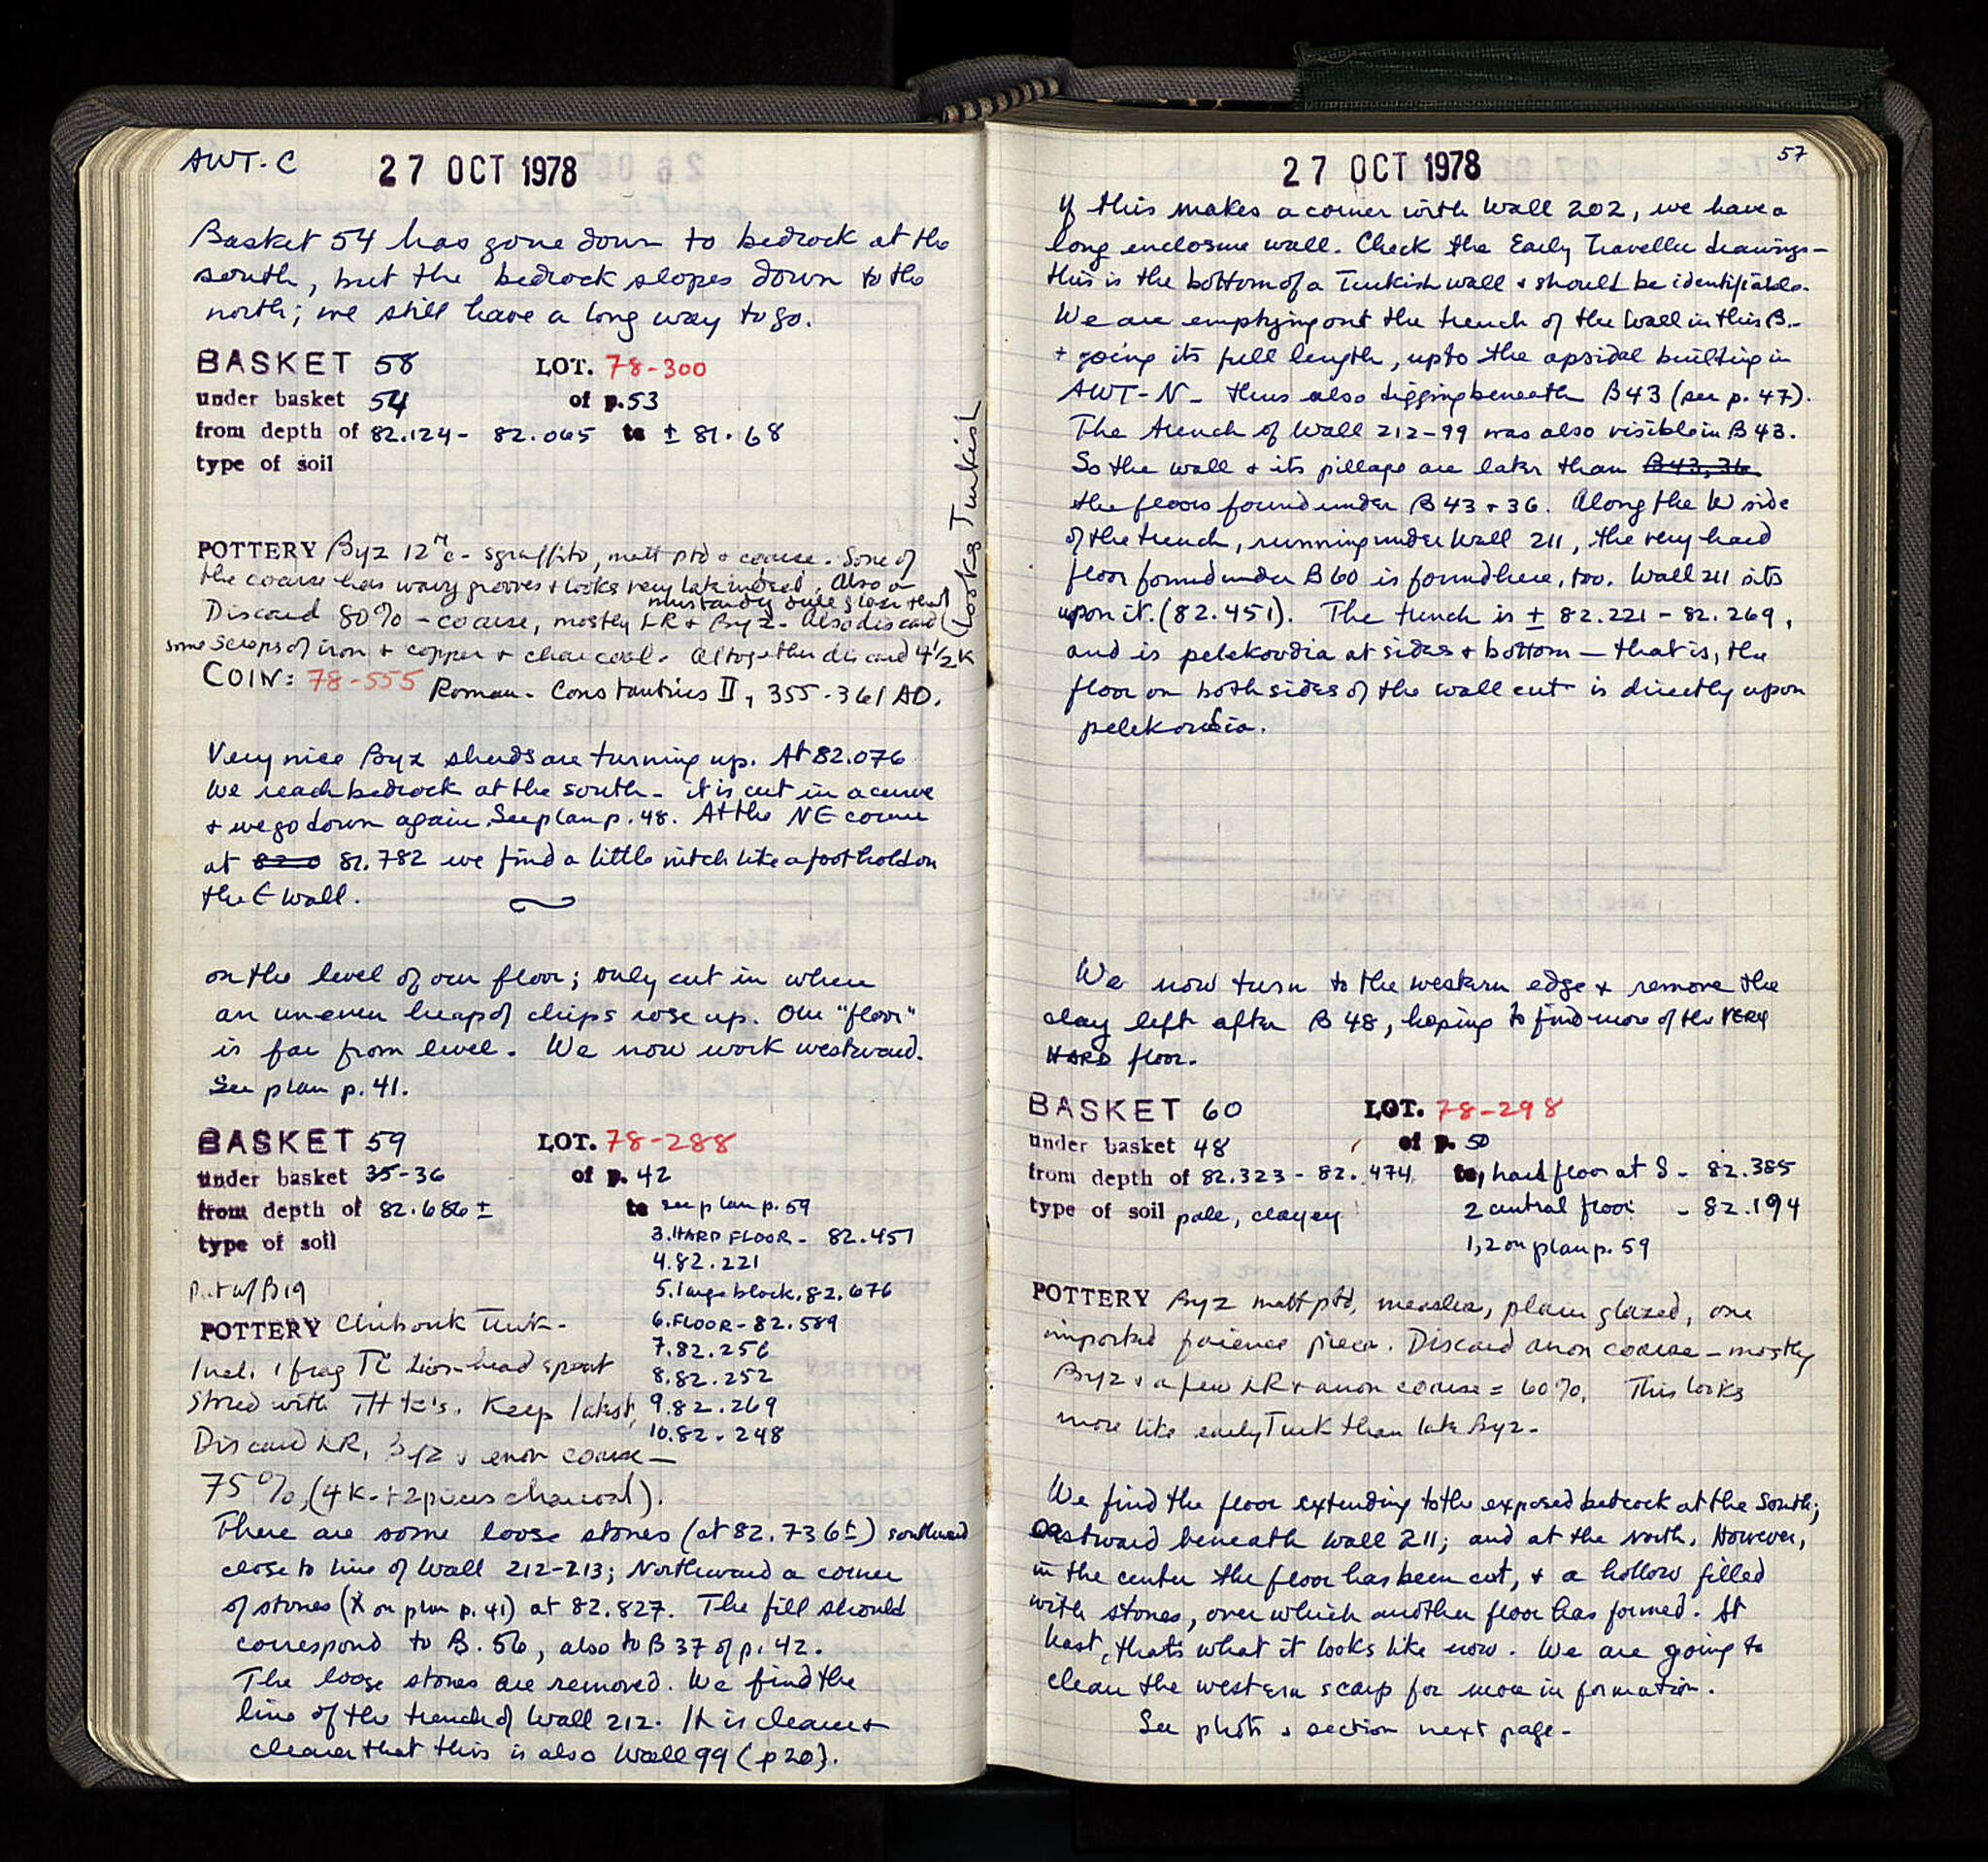 AWT-C 27 OCT 1978
Basket 54 has gone down to bedrock at the
south, but the bedrock slopes down to the
north; we still have a long way to go.
BASKET 58 LOT. 78-300
under basket 54 of p. 53
from depth of 82.124 - 82.065 to ± 81.68
type of soil
POTTERY Byz 12th c - sgraffito, matt ptd + coarse. Some of
the coarse has wavy grooves + looks very late indeed. Also a
mustardy dull glaze that
(looks Turkish
Discard 80% - coarse, mostly LR + Byz. Also discard
some scraps of iron + copper + charcoal. Altogether discard 4 1/2 K
COIN: 78-555 Roman - Constantius II, 355-361 AD.
Very nice Byz sherds are turning up. At 82.076
we reach bedrock at the south - it is cut in a curve
+ we go down again. See plan p. 48. At the NE corner
at 82.0 81.782 we find a little nitch like a foothold on
the E wall.
on the level of our floor; only cut in when
an uneven heap of chips rose up. Our "floor"
is far from level. We now work westward.
See plan p. 41.
BASKET 59 LOT. 78-288
under basket 35-36 of p. 42
from depth of 82.686 ± to see plan p. 59
type of soil
3. HARD FLOOR - 82.451
4. 82.221
5. large block. 82.676
6. FLOOR - 82.589
7. 82.256
8. 82.252
9. 82.269
10. 82.248
Put w/ B19
POTTERY Chibouk Turk -
Incl. 1 frag TC lion-head spout
stored with TH tc's. Keep latest,
Discard LR, Byz + anon coarse -
75%, (4 K - + 2 pieces charcoal).
There are some loose stones (at 82.736 ±) southward
close to line of Wall 212-213; Northward a corner
of stones (X on plan p. 41) at 82.827. The fill should
correspond to B. 56, also to B 37 of p. 42.
The loose stones are removed. We find the
line of the trench of Wall 212. It is clearer +
clearer that this is also Wall 99 (p 20).
27 OCT 1978 57
If this makes a corner with Wall 202, we have a
long enclosure wall. Check the Early Traveller drawings -
this is the bottom of a Turkish wall + should be identifiable.
We are emptying out the trench of the Wall in this B.
+ going its full length, up to the apsidal building in
AWT-N - thus also digging beneath B43 (see p. 47).
The trench of Wall 212-99 was also visible in B 43.
So the wall + its pillage are later than B43, 36
the floors found under B 43 + 36. Along the W side
of the trench, running under Wall 211, the very hard
floor found under B 60 is found here, too. Wall 211 sits
upon it. (82.451). The trench is ± 82.221 - 82.269,
and is pelekoudia at sides + bottom - that is, the
floor on both sides of the wall cut is directly upon
pelekoudia.
We now turn to the western edge + remove the
clay left after B 48, hoping to find more of the VERY
HARD floor.
BASKET 60 LOT. 78-298
under basket 48 of p. 50
from depth of 82.323 - 82.474 to 1, hard floor at S - 82.385
type of soil pale, clayey 2 central floor - 82.194
1,2 on plan p. 59
POTTERY Byz matt ptd, measles, plain glazed, one
imported faience piece. Discard anon coarse - mostly
Byz + a few LR + anon coarse = 60%. This looks
more like early Turk than late Byz.
We find the floor extending to the exposed bedrock at the South;
eastward beneath Wall 211; and at the North. However,
in the center the floor has been cut, + a hollow filled
with stones, over which another floor has formed. At
least, that's what it looks like now. We are going to
clean the western scarp for more information.
See photo + section next page -